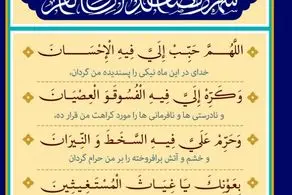 اللَّهُمَّ حَبِّبْ إِلَيَّ فِيهِ الْإِحْسَانَ
خدای در این ماه نیکی را پسندیده من گردان،
وَ كَرِّهْ إِلَيَّ فِيهِ الْفُسُوقَ وَ الْعِصْيَانَ
و نادرستی ها و نافرمانی ها را مورد کراهت من قرار ده،
وَ حَرِّمْ عَلَيَّ فِيهِ السَّخَطَ وَ النِّيرَانَ
و خشم و آتش برافروخته را بر من حرام گردان
بِعَوْنِكَ يَا غِيَاثَ الْمُسْتَغِيثِينَ